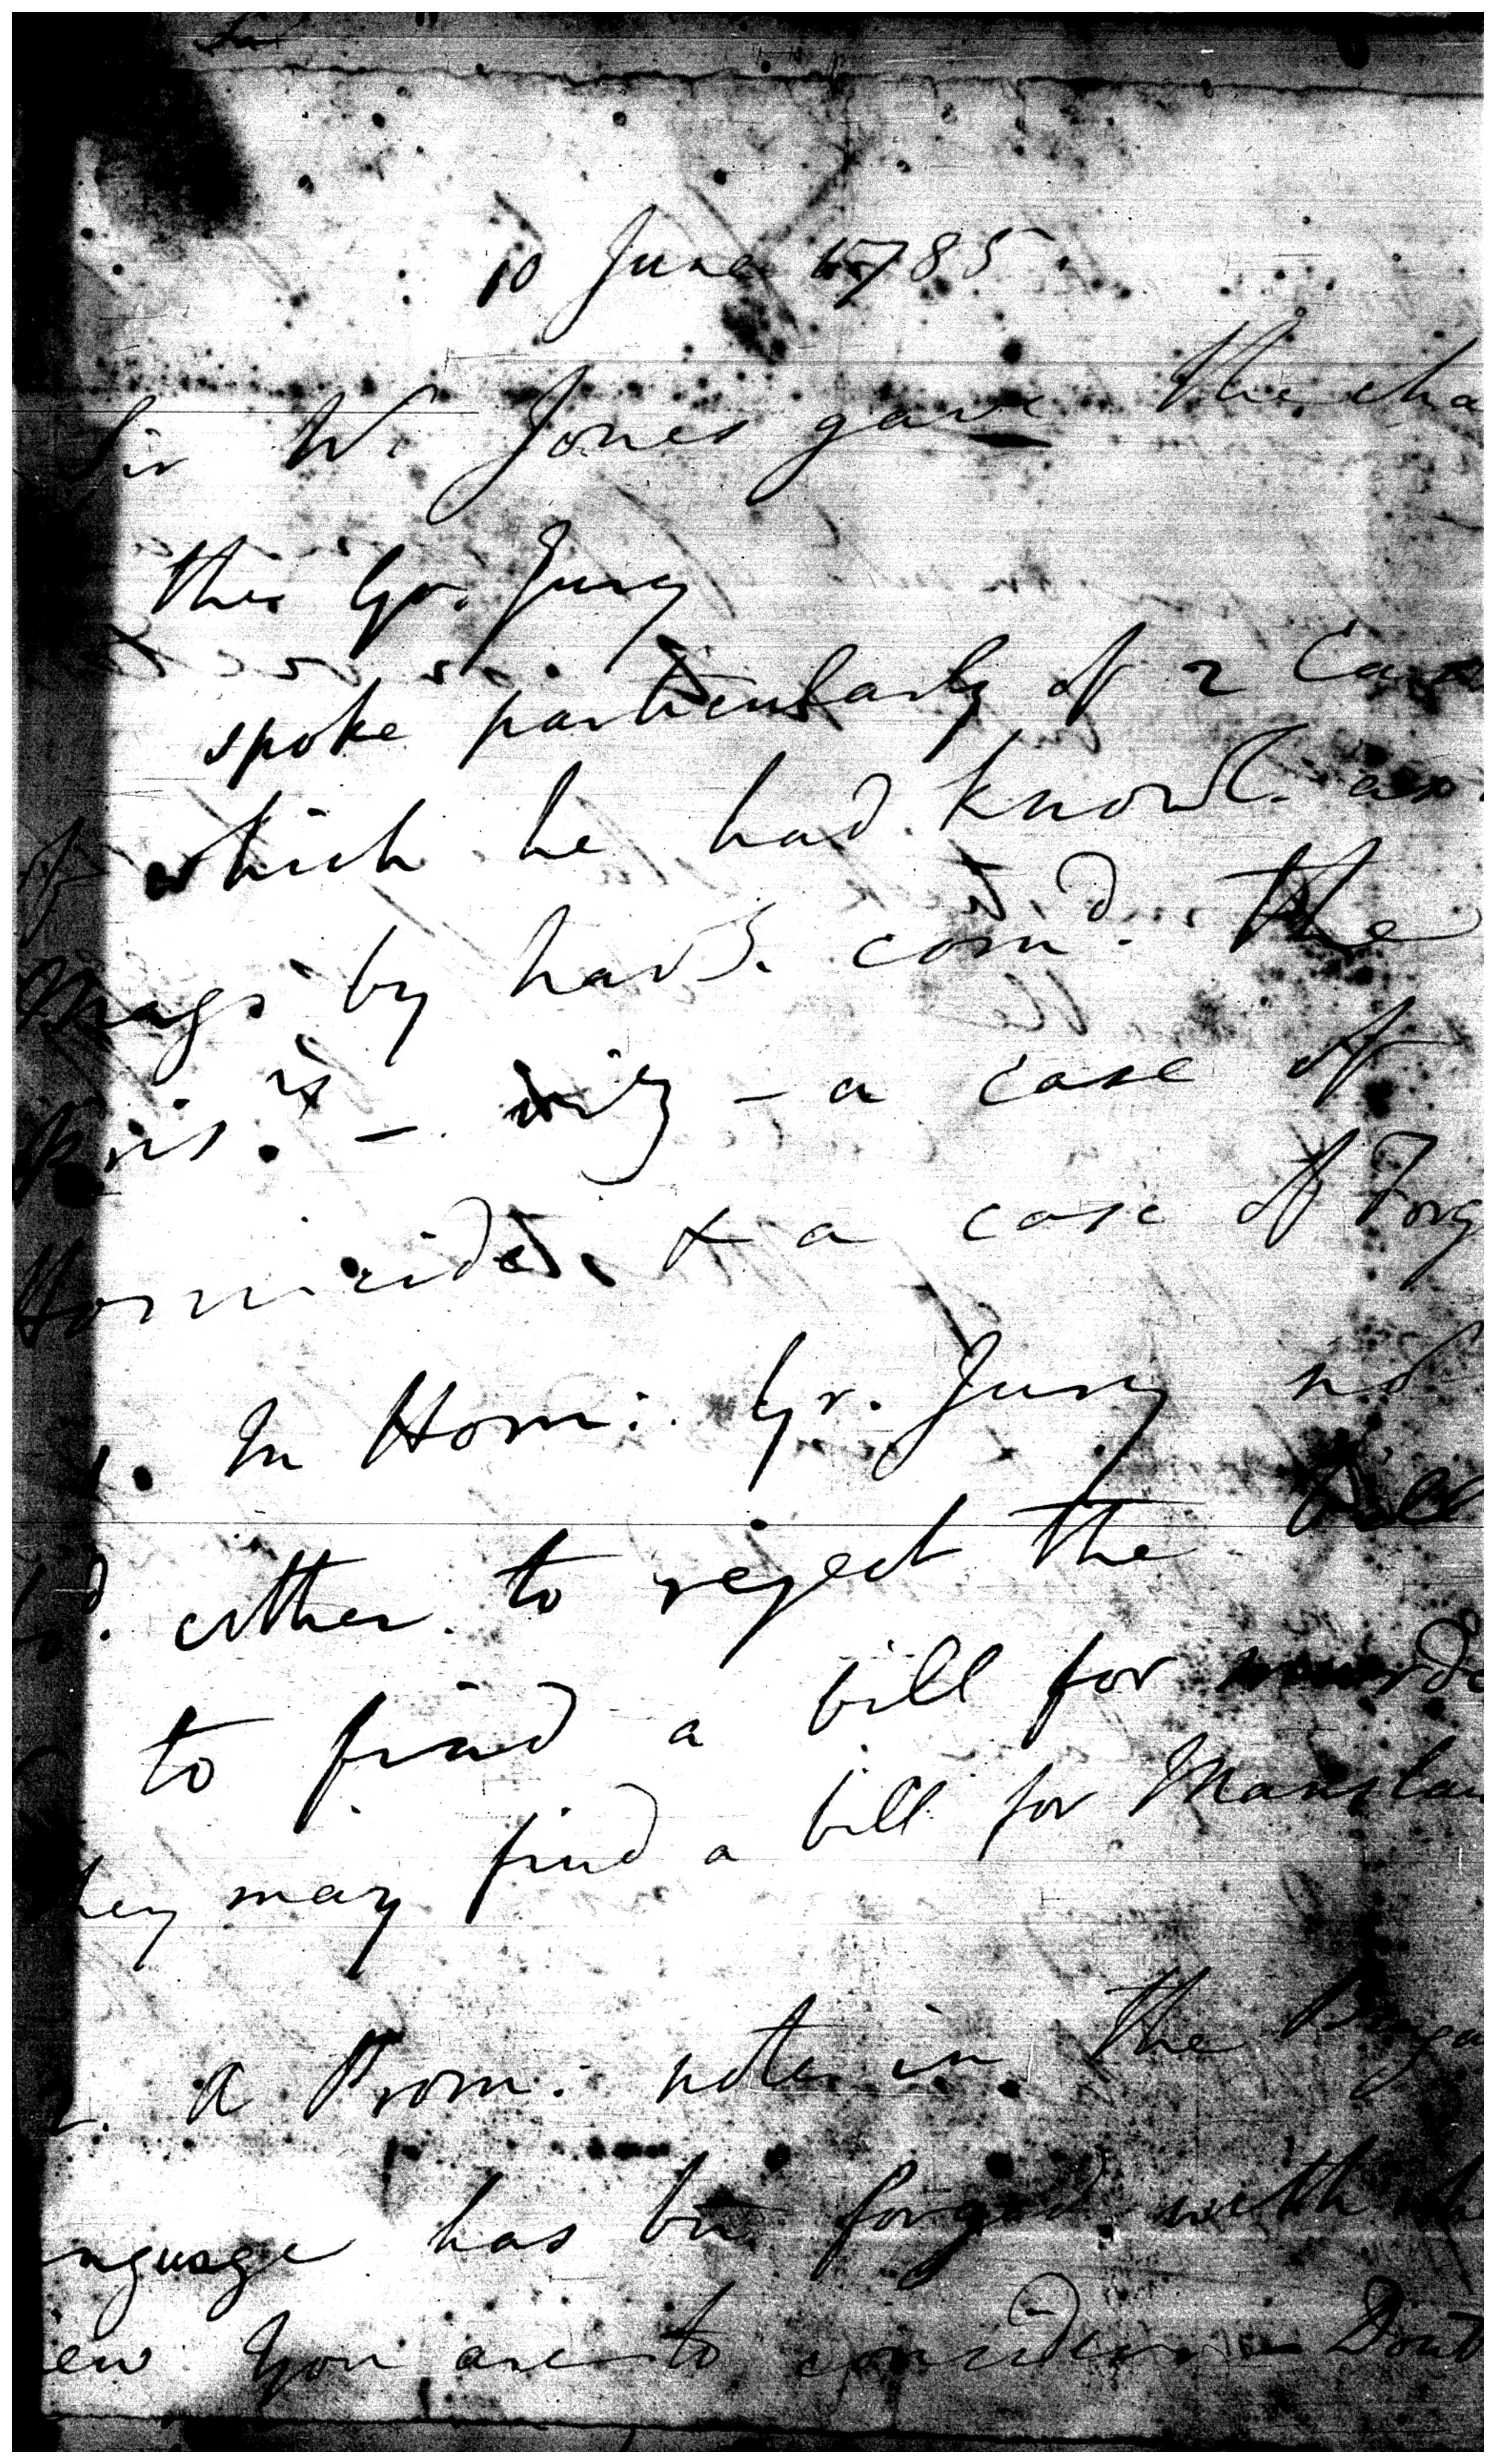 10 June 1785
Sir W. Jones gave the cha
the Gr. Jury
spoke particularly of 2 Cases
of which he had knowl. as
Mags by havg. comd. the
Pris.rs – viz – a case of
Homicide, & a case of Forg
1. In Hom: Gr. Jury not
bd. either to reject the bill
to find a bill for murde
hey may find a bill for Manslau
2. A Prom: note in the Benga
nguage has bn forged with
iew you are to consider